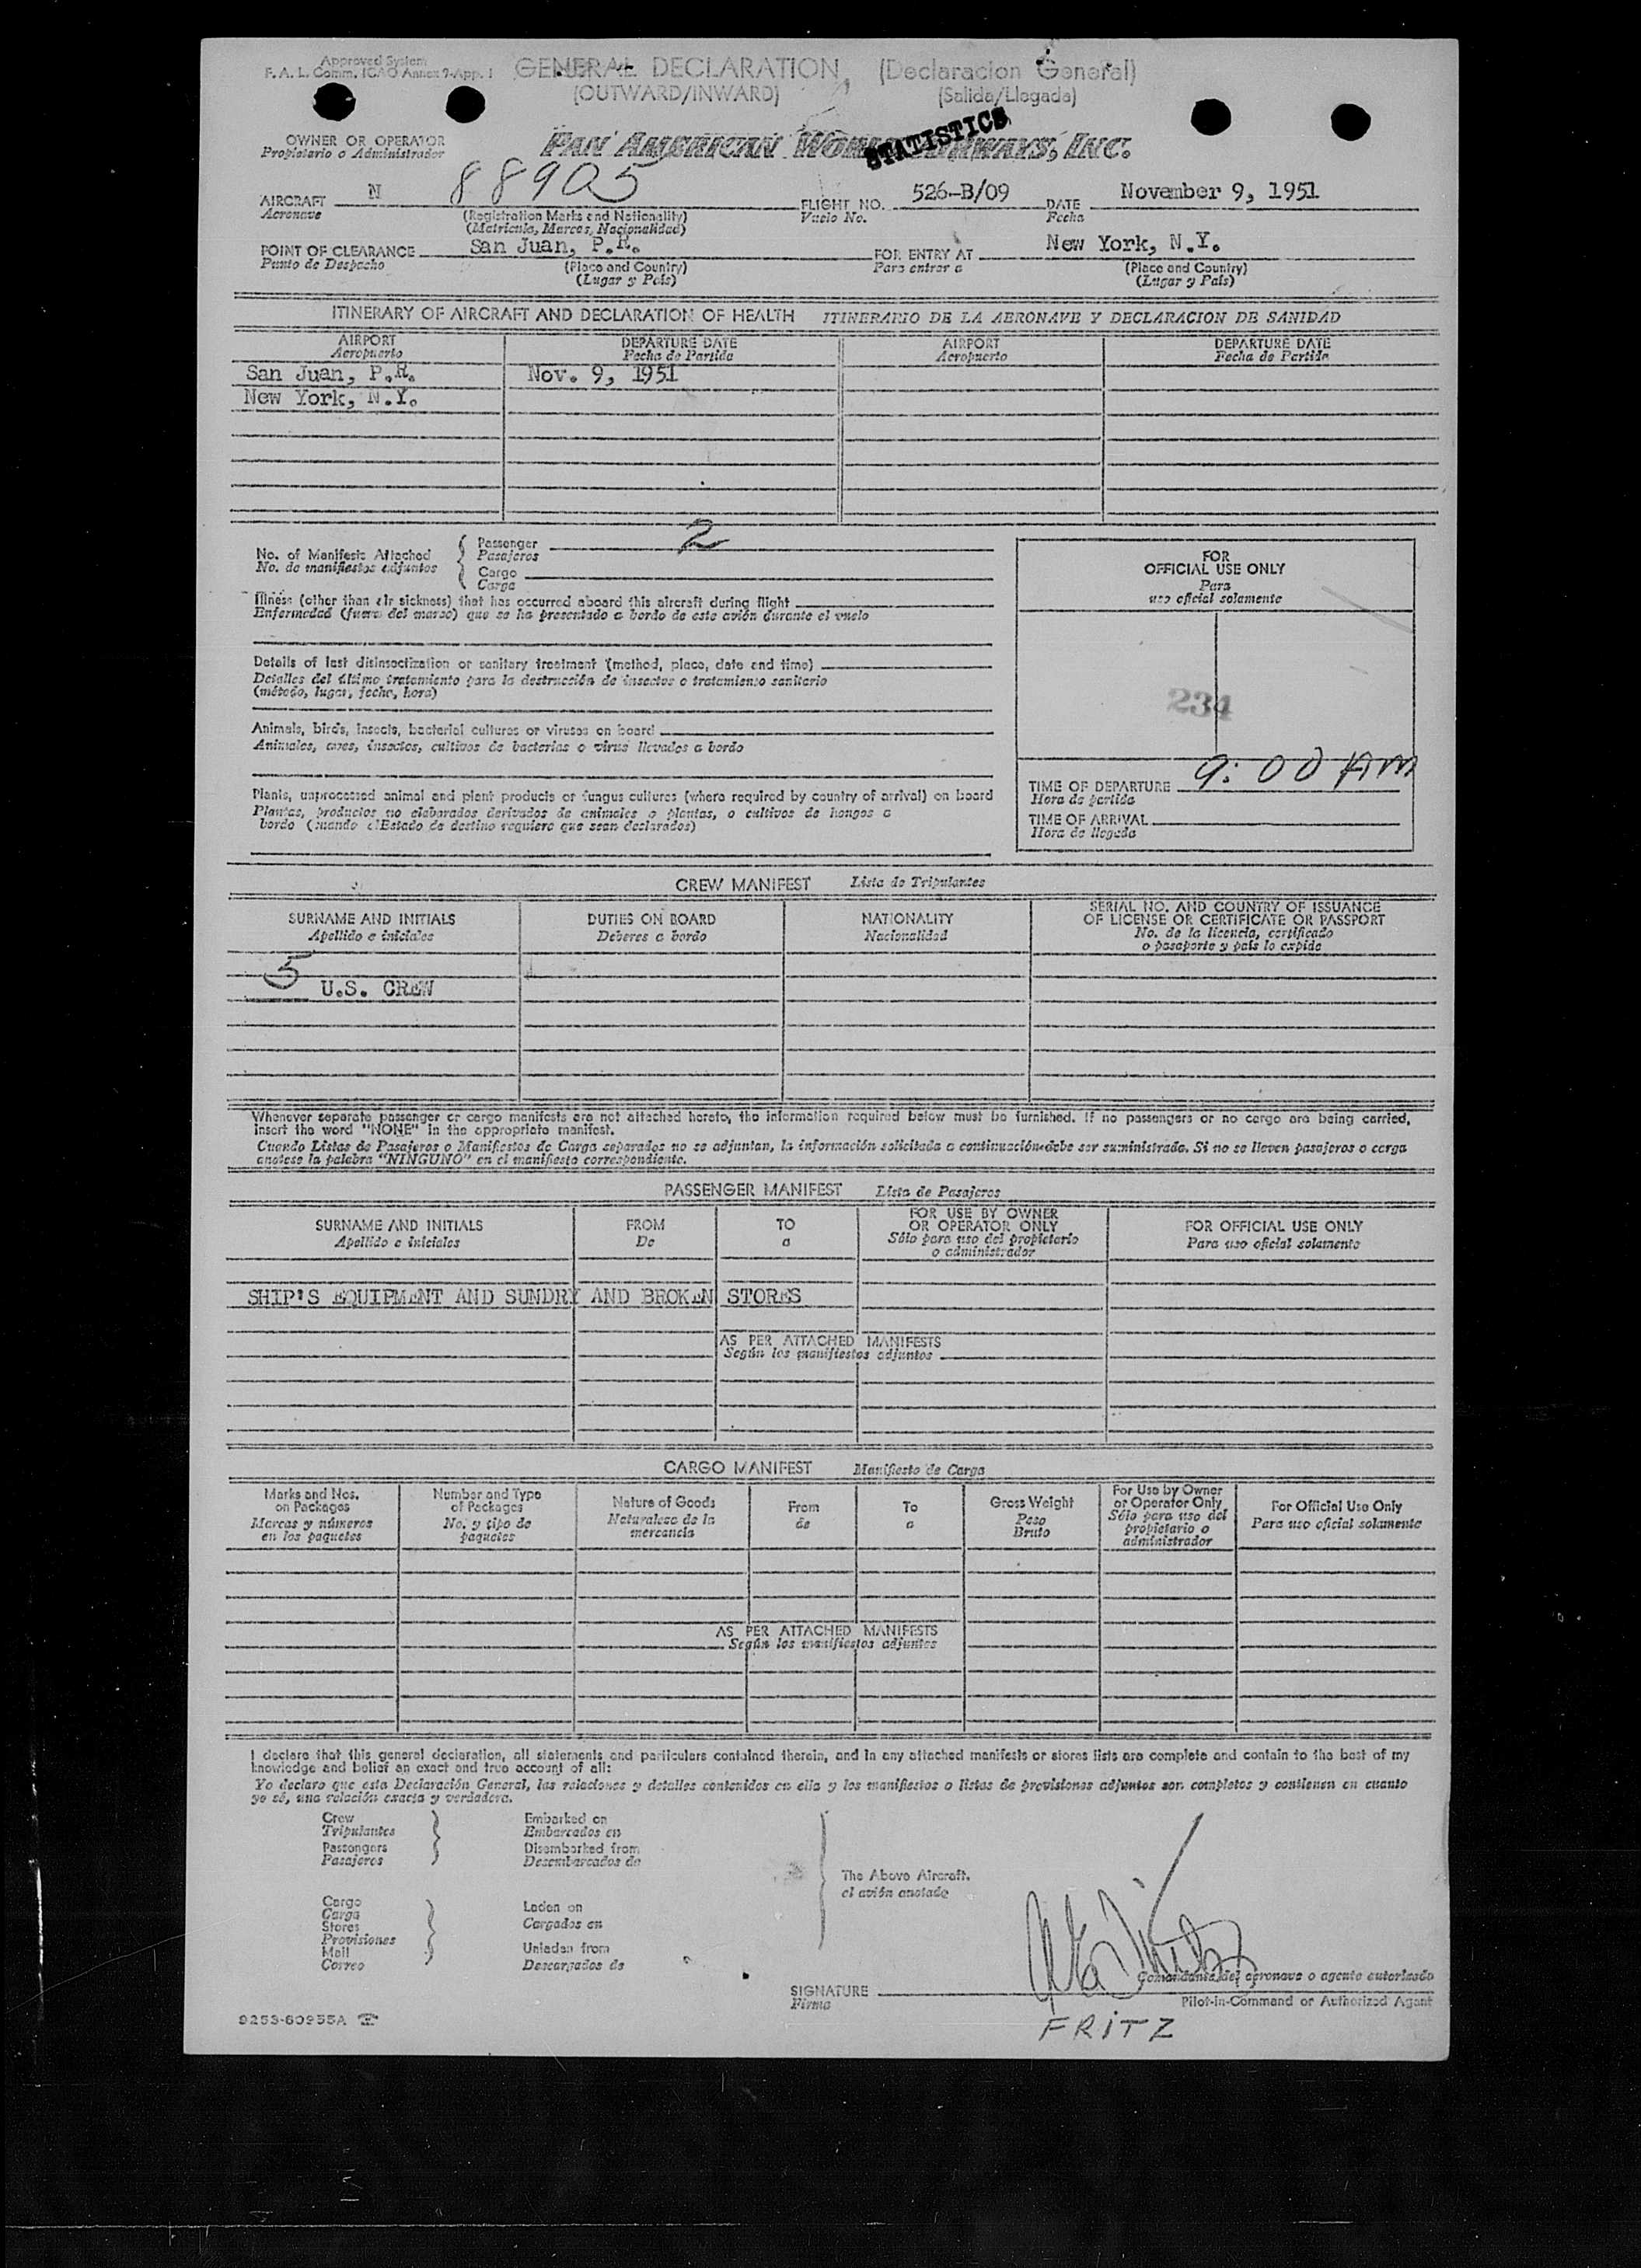 Approved System
F. A. L. Comm. ICAO Annex 9-App. 1
GENERAL DECLARATION, (Declaracion General)
(OUTWARD/INWARD) (Salida/Llegada)
OWNER OR OPERATOR
Propietario o Administrador
PAN AMERICAN WORLD AIRWAYS, INC.
STATISTICS
AIRCRAFT N 88905 FLIGHT NO. 526-B/09 DATE November 9, 1951
Aeronave (Registration Marks and Nationality) Vuelo No. Fecha
(Matricula, Marcas, Nacionalidad)
POINT OF CLEARANCE San Juan, P.R. FOR ENTRY AT New York, N.Y.
Punto de Despacho (Place and Country) Para entrar a (Place and Country)
(Lugar y País) (Lugar y País)
ITINERARY OF AIRCRAFT AND DECLARATION OF HEALTH ITINERARIO DE LA AERONAVE Y DECLARACION DE SANIDAD
AIRPORT DEPARTURE DATE AIRPORT DEPARTURE DATE
Aeropuerto Fecha de Partida Aeropuerto Fecha de Partida
San Juan, P.R. Nov. 9, 1951
New York, N.Y.
No. of Manifests Attached
No. de manifiestos adjuntos
Passenger 2
Pasajeros
Cargo
Carga
Illness (other than air sickness) that has occurred aboard this aircraft during flight
Enfermedad (fuera del mareo) que se ha presentado a bordo de este avión durante el vuelo
Details of last disinsectization or sanitary treatment (method, place, date and time)
Detalles del último tratamiento para la destrucción de insectos o tratamiento sanitario
(método, lugar, fecha, hora)
Animals, birds, insects, bacterial cultures or viruses on board
Animales, aves, insectos, cultivos de bacterias o virus llevados a bordo
Plants, unprocessed animal and plant products or fungus cultures (where required by country of arrival) on board
Plantas, productos no elaborados derivados de animales o plantas, o cultivos de hongos a
bordo (cuando el Estado de destino requiere que sean declarados)
FOR
OFFICIAL USE ONLY
Para
uso oficial solamente
234
TIME OF DEPARTURE 9:00 AM
Hora de partida
TIME OF ARRIVAL
Hora de llegada
CREW MANIFEST Lista de Tripulantes
SURNAME AND INITIALS DUTIES ON BOARD NATIONALITY SERIAL NO. AND COUNTRY OF ISSUANCE
OF LICENSE OR CERTIFICATE OR PASSPORT
Apellido e iniciales Deberes a bordo Nacionalidad No. de la licencia, certificado
o pasaporte y pais lo expide
5 U.S. CREW
Whenever separate passenger or cargo manifests are not attached hereto, the information required below must be furnished. If no passengers or no cargo are being carried,
insert the word "NONE" in the appropriate manifest.
Cuando Listas de Pasajeros o Manifiestos de Carga separados no se adjuntan, la información solicitada a continuación debe ser suministrada. Si no se lleven pasajeros o carga
anotese la palabra "NINGUNO" en el manifiesto correspondiente.
PASSENGER MANIFEST Lista de Pasajeros
SURNAME AND INITIALS FROM TO FOR USE BY OWNER
OR OPERATOR ONLY FOR OFFICIAL USE ONLY
Apellido e iniciales De a Sólo para uso del propietario
o administrador Para uso oficial solamente
SHIP'S EQUIPMENT AND SUNDRY AND BROKEN STORES
AS PER ATTACHED MANIFESTS
Según los manifiestos adjuntos
CARGO MANIFEST Manifiesto de Carga
Marks and Nos.
on Packages
Marcas y números
en los paquetes
Number and Type
of Packages
No. y tipo de
paquetes
Nature of Goods
Naturaleza de la
mercancia
From
de
To
a
Gross Weight
Peso
Bruto
For Use by Owner
or Operator Only
Sólo para uso del
propietario o
administrador
For Official Use Only
Para uso oficial solamente
AS PER ATTACHED MANIFESTS
Según los manifiestos adjuntos
I declare that this general declaration, all statements and particulars contained therein, and in any attached manifests or stores lists are complete and contain to the best of my
knowledge and belief an exact and true account of all:
Yo declaro que esta Declaración General, las relaciones y detalles contenidos en ella y los manifiestos o listas de provisiones adjuntos son completos y contienen en cuanto
yo sé, una relación exacta y verdadera.
Crew
Tripulantes
Passengers
Pasajeros
Embarked on
Embarcados en
Disembarked from
Desembarcados de
Cargo
Carga
Stores
Provisiones
Mail
Correo
Laden on
Cargados en
Unladen from
Descargados de
The Above Aircraft.
el avión anotado
SIGNATURE
Firma
Comandante del aeronave o agente autorizado
Pilot-in-Command or Authorized Agent
FRITZ
9253-60955A